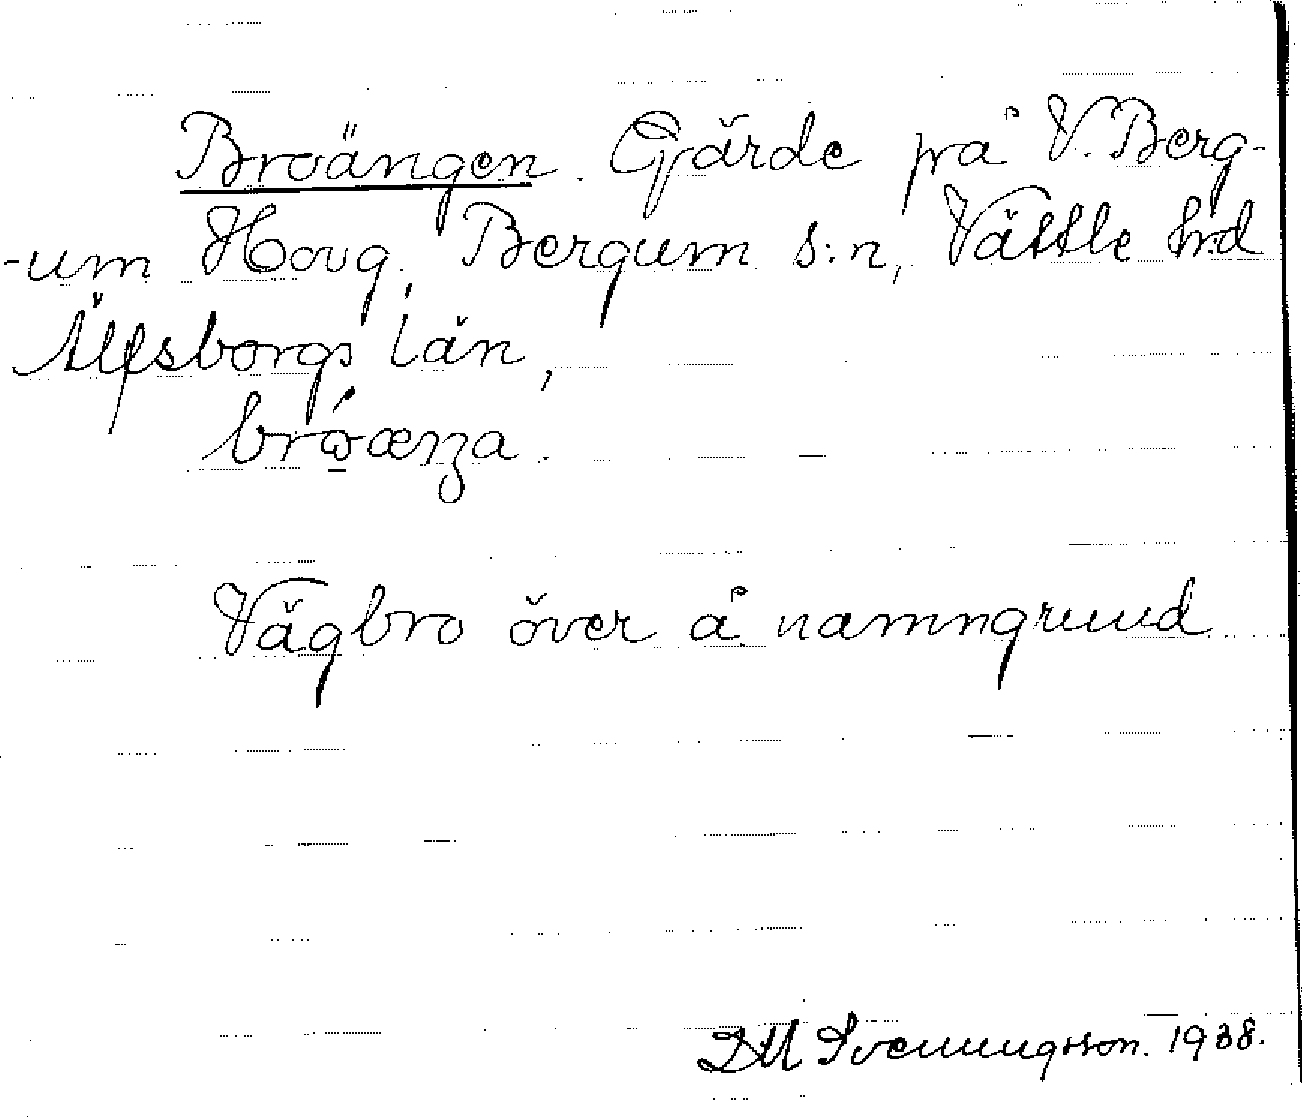 Broängen. Gärde på V. Berg-
-um Hovg. Bergum s:n, Vättle hrd
Älfsborgs län,
Vägbro över å namngrund
DM Svenungsson. 1938.